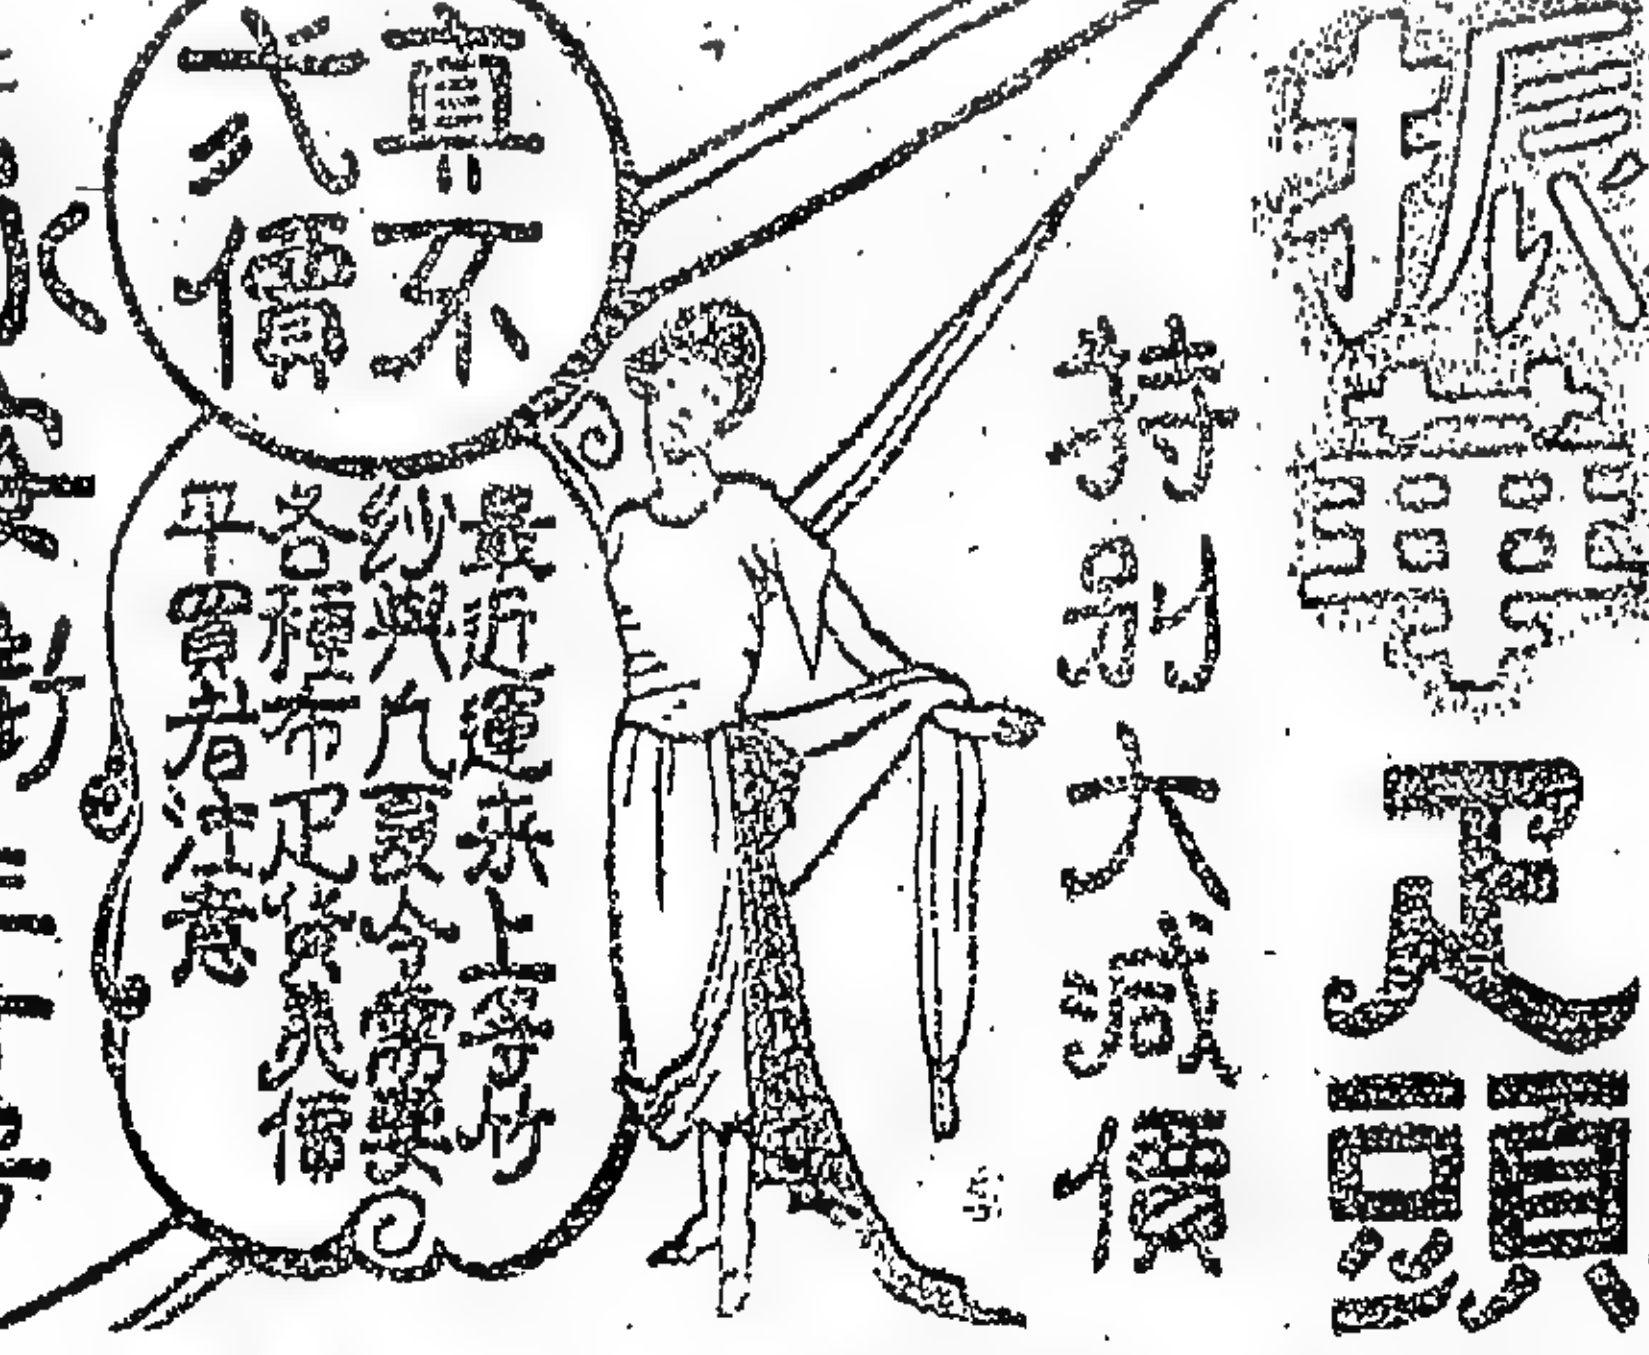 振華疋頭
特別大減價
真不
弍價
最近運來上等竹
紗與凡夏令需要
各種布疋貨美價
平買者注意